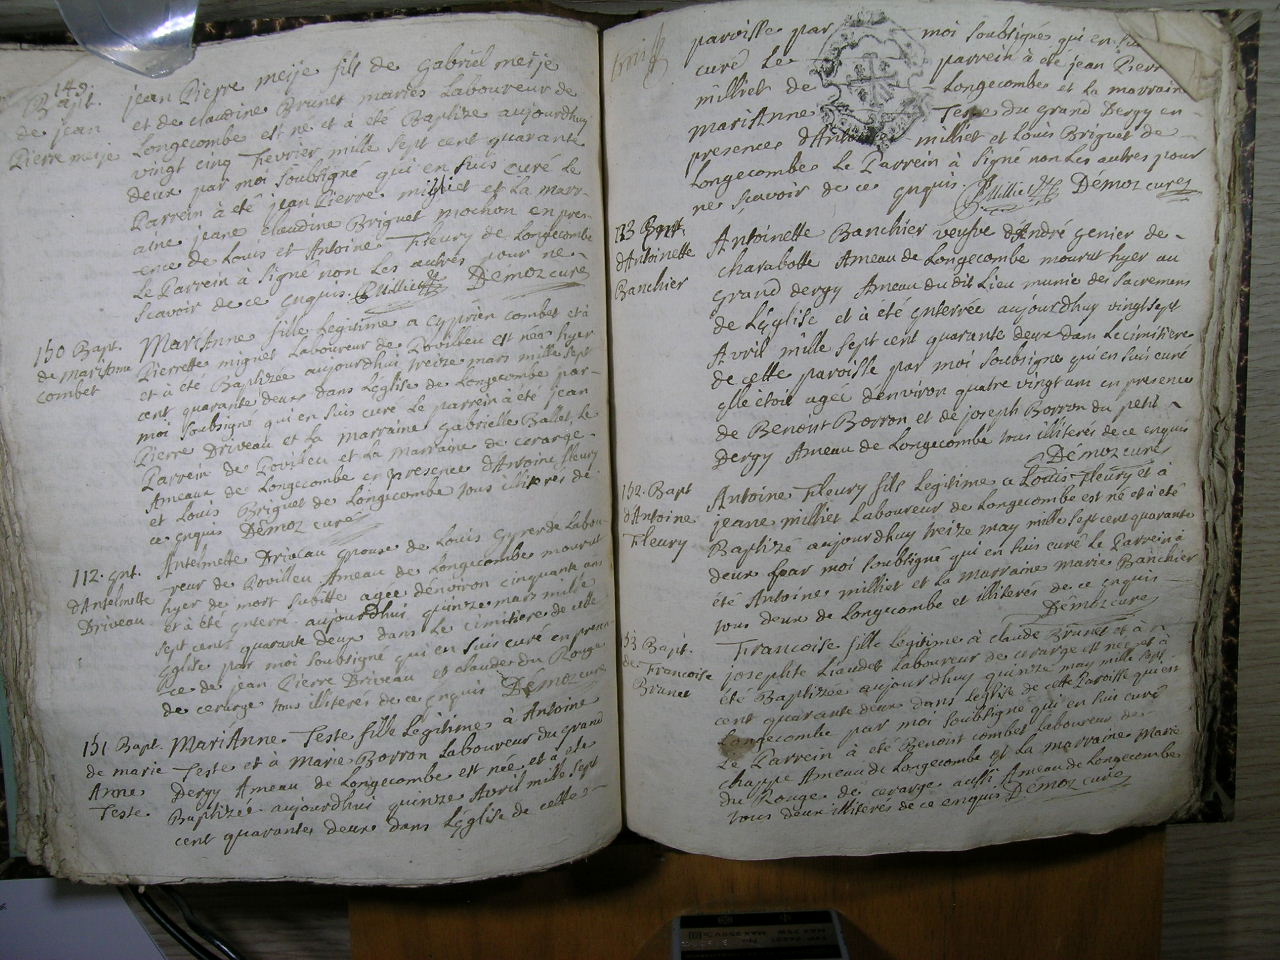 149.
Bapt.
de jean
Pierre meije
jean Pierre meije fils de Gabriel meije
et de claudine Brunet mariés Laboureur de
Longecombe est né et à eté Baptize aujourdhuy
vingt cinq Fevrier mille sept cent quarante
deux par moi soubsigné qui en suis curé le
Parrein à été jean Pierre milliet et La marr-
aine jeane claudine Briguet mochon en pres-
ence de Louis et Antoine Fleury de Longecombe
Le Parrein à signé non Les autres pour ne
scavoir de ce enquis. PMilliet Démoz curé
150 Bapt.
de mariAnne
combet
MariAnne fille Legitime a cyprien combet et à
Pierrette mignet Laboureur de Rovilleu est née hyer
et à été Baptizée aujourdhui treize mars mille sept
cent quarante deux dans Leglise de Longecombe par
moi soubsigné qui en suis curé Le parrein à été jean
Pierre Driveau et La marraine gabrielle Ballet, Le
Parrein de Rovilleu et La Marraine de cerarge
Ameaux de Longecombe en presence d'Antoine fleury
et Louis Briguet de Longecombe tous illiteres de
ce enquis Démoz curé
112. Ent.
d'Antelmette
Driveau
Antelmette Driveau Epouse de Louis Gynerde Labou-
reur de Rovilleu Ameau de Longecombe mourut
hyer de mort subitte agée d'environ cinquante ans
et à été enterré aujourdhui quinze mars mille
sept cents quarante deux dans Le cimitiere de cette
Eglise par moi soubsigné qui en suis curé en presen-
ce de jean Pierre Driveau et claude du Rouge
de cerarge tous illiterés de ce enquis Démoz curé
151 Bapt.
de marie
Anne
Teste.
MariAnne Teste fille Legitime à Antoine
Teste et à Marie Borron Laboureur du grand
Dergy Ameau de Longecombe est née et à été
Baptizée aujourdhui quinze Avril mille sept
cent quarante deux dans L'église de cette
paroisse par moi soubsigné qui en suis
curé Le parrein à été jean Pierre
milliet de Longecombe et La marraine
mariAnne Teste du grand Dergy en
presence d'Antoine milliet et Louis Briguet de
Longecombe Le Parrein à signé non Les autres pour
ne scavoir de ce enquis. PMilliet Démoz curé
113 Ent.
d'Antoinette
Banchier
Antoinette Banchier veufve d'André genier de
charabotte Ameau de Longecombe mourut hyer au
grand dergy Ameau du dit Lieu munie des sacremens
de L'Eglise et à été enterrée aujourdhuy vingt sept
Avril mille sept cent quarante deux dans Le cimitiere
de cette paroisse par moi soubsigné qui en suis curé
elle étoit agée d'environ quatre vingt ans en presence
de Benoit Borron et de joseph Borron du petit
Dergy Ameau de Longecombe tous illiterés de ce enquis
Démoz curé
152. Bapt
d'Antoine
Fleury
Antoine Fleury fils Legitime a Louis Fleury et à
jeane milliet Laboureur de Longecombe est né et à été
Baptizé aujourdhuy treize may mille sept cent quarante
deux par moi soubsigné qui en suis curé Le Parrein à
été Antoine milliet et La marraine marie Banchier
tous deux de Longecombe et illiterés de ce enquis
Démoz curé
53 Bapt.
de Francoise
Brunet
Francoise fille Légitime à claude Brunet et à
josephte Liaudet Laboureur de cerarge est née et à
été Baptizée aujourdhuy quinze may mille sept
cent quarante deux dans L'église de cette Paroisse
Longecombe par moi soubsigné qui en suis curé
Le Parrein à été Benoist combet Laboureur de
chappe Ameau de Longecombe et La marraine Marie
du Rouge de cerarge aussi Ameau de Longecombe
tous deux illiterés de ce enquis Démoz curé